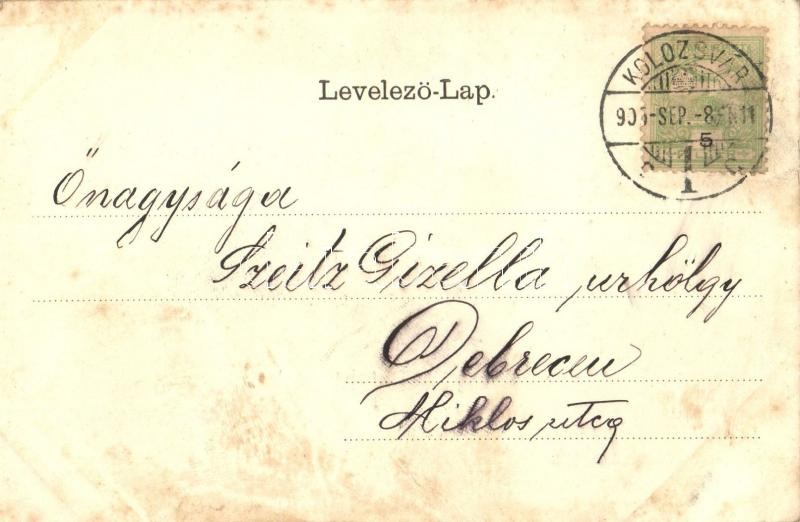 Levelezö-Lap.
KOLOZSVÁR
5
1
Őnagysága
Szeitz Gizella urhölgy
Debrecen
Miklos utcq